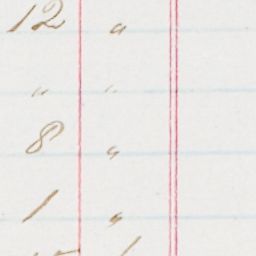 12 "
" "
8 "
1 "